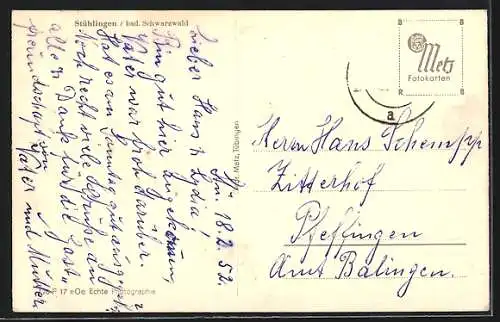 Stühlingen / bad. Schwarzwald
Am. 18.2.52.
Lieber Hans u. Lydia!
Bin gut hier angekommen,
Vater war froh darüber.
Hat es am Sonntag gut
Noch recht viele Grüße an
alle u. Dank für die Gast-
freundschaft von
Vater und Mutter
17 Echte Photographie
Metz, Tübingen
Metz
Fotokarten
a
Herrn Hans Schempp
Zitterhof
Pfeffingen
Amt Balingen.